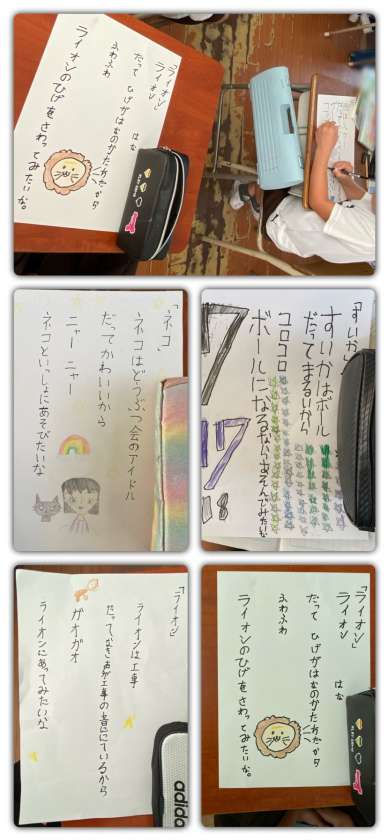 「ライオン」
ライオン はな
だって ひげがはなのかたちだから
ふわふわ
ライオンのひげをさわってみたいな。
「ネコ」
ネコはどうぶつ会のアイドル
だってかわいいから
ニャー ニャー
ネコといっしょにあそびたいな
「すいか」
すいかはボール
だってまるいから
コロコロ
ボールになるならあそんでみたいな
「ライオン」
ライオンは工事
だって、なき声が工事の音ににているから
ガオガオ
ライオンにあってみたいな
adidas
「ライオン」
ライオン はな
だって ひげがはなのかたちだから
ふわふわ
ライオンのひげをさわってみたいな。